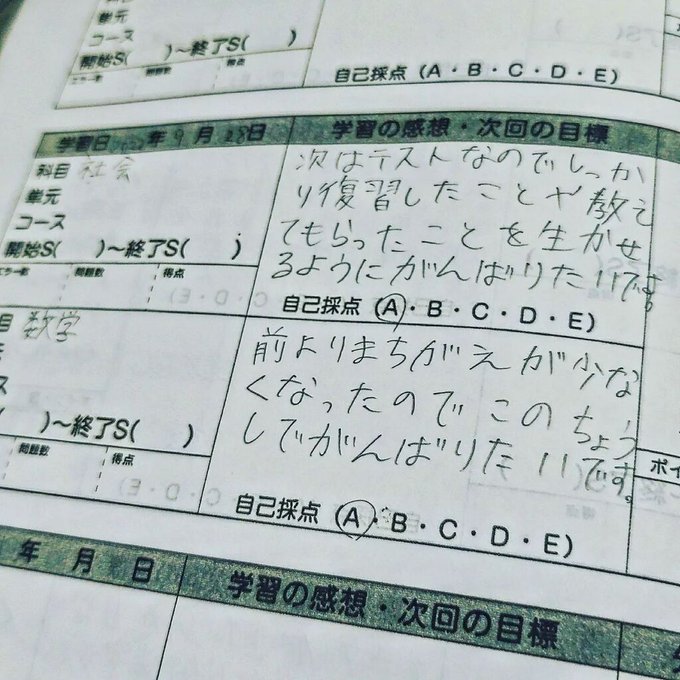 単元
コース
開始S( )〜終了S( )
エラー数 問題数 得点
自己採点 (A・B・C・D・E)
学習日 年9月28日
学習の感想・次回の目標
科目 社会
単元
コース
開始S( )〜終了S( )
エラー数 問題数 得点
次はテストなのでしっか
り復習したことや教え
てもらったことを生かせ
るようにがんばりたいです。
自己採点 (A・B・C・D・E)
目 数学
ス
( )〜終了S( )
問題数 得点
前よりまちがえが少な
くなったのでこのちょう
しでがんばりたいです。
自己採点 (A・B・C・D・E)
ポイ
年 月 日
学習の感想・次回の目標